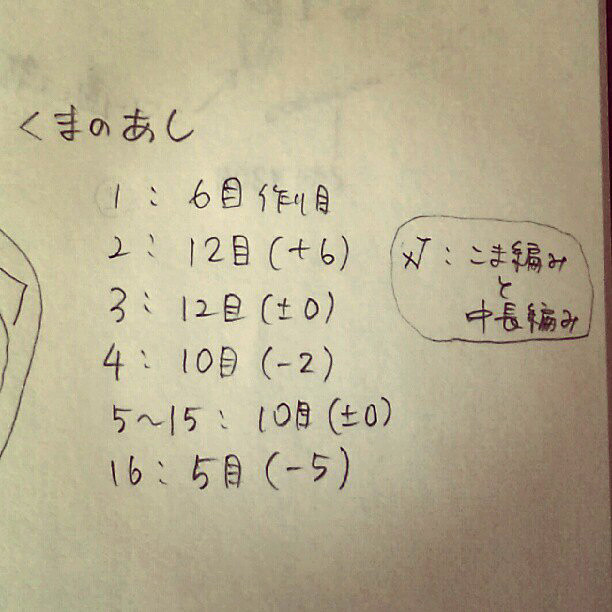 くまのあし
1: 6目 作り目
2: 12目(+6)
3: 12目(±0)
4: 10目(-2)
5〜15: 10目(±0)
16: 5目(-5)
xT: こま編み
と
中長編み